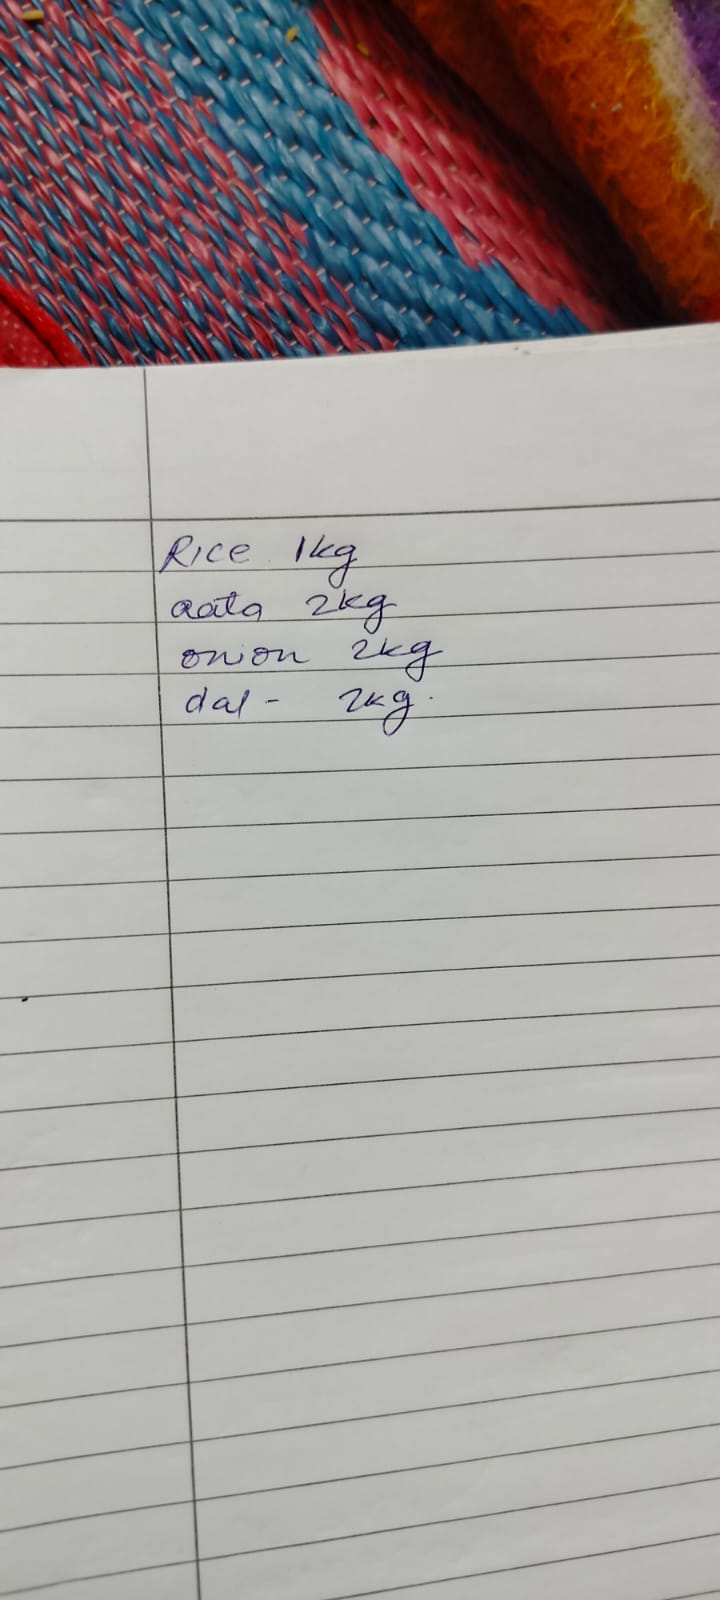 Rice 1kg
aata 2kg
onion 2kg
dal - 2kg.